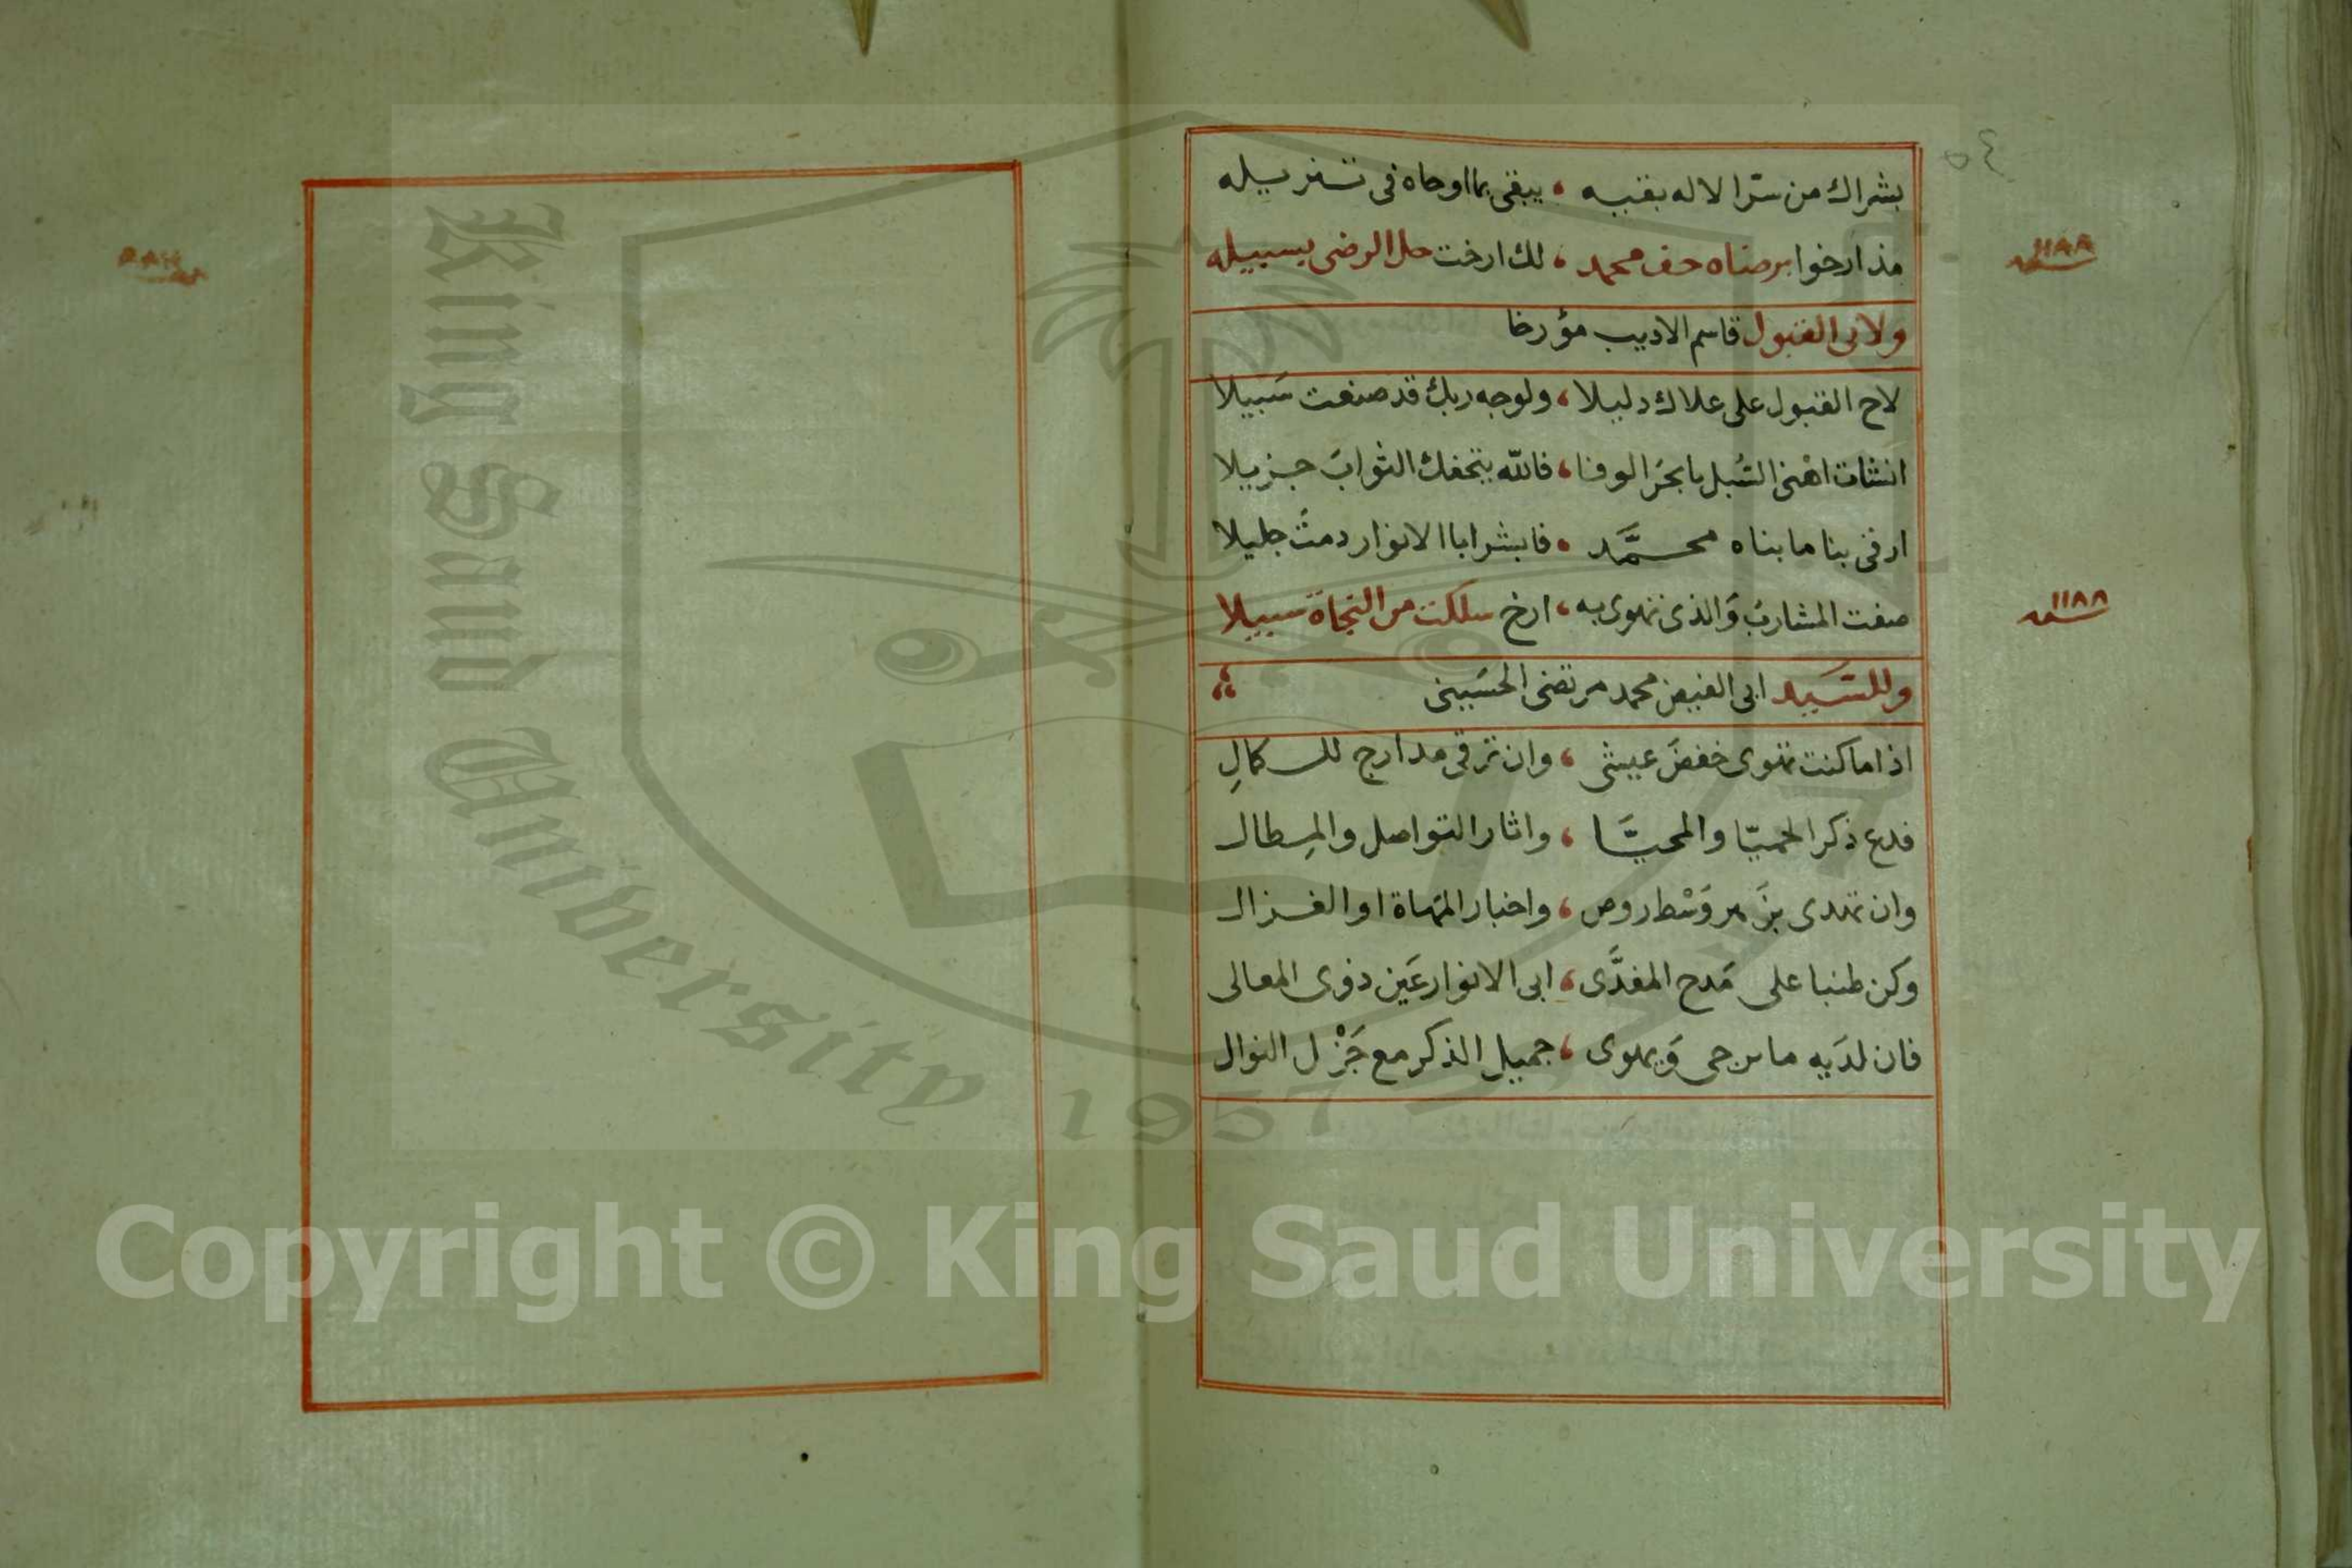 ٥٤
بشراك من ستر الاله بقيه ، يبقى بما اوحاه فى تنزيله
مذ ارخوا برضاه حف محمد ، لك ارخت حل الرضى بسبيله
سنه ١١٨٨
ولابى القبول قاسم الاديب مؤرخا
لاح القبول على علاك دليلا ، ولوجه ربك قد صنعت سَبيلا
انشات اهنى السُبل يا بحرَ الوفا ، فالله يتحفك الثوابَ جزيلا
ارقى بنا ما بناه محمَّد ، فابشر ابا الانوار دمتَ جليلا
صفت المشاربُ وَالذى تهوى به ، ارخ سلكت من النجاة سبيلا
سنه ١١٨٨
وللسَيد ابى الفيض محمد مرتضى الحسَينى
اذا ما كنت تهوى خفضَ عيش ، وان ترقى مدارج للكمالِ
فدع ذكر الحميّا والمحيَّا ، واثار التواصل والمِطال
وان تهدى بزَهر وَسْط روض ، واخبار المَهاة او الغزال
وكن طنبا على مَدح المفدَّى ، ابى الانوار عَين ذوى المعالى
فان لدَيه ما يرجى وَيهوى ، جميل الذكر مع جَزْل النوال
Copyright © King Saud University
King Saud University
1957